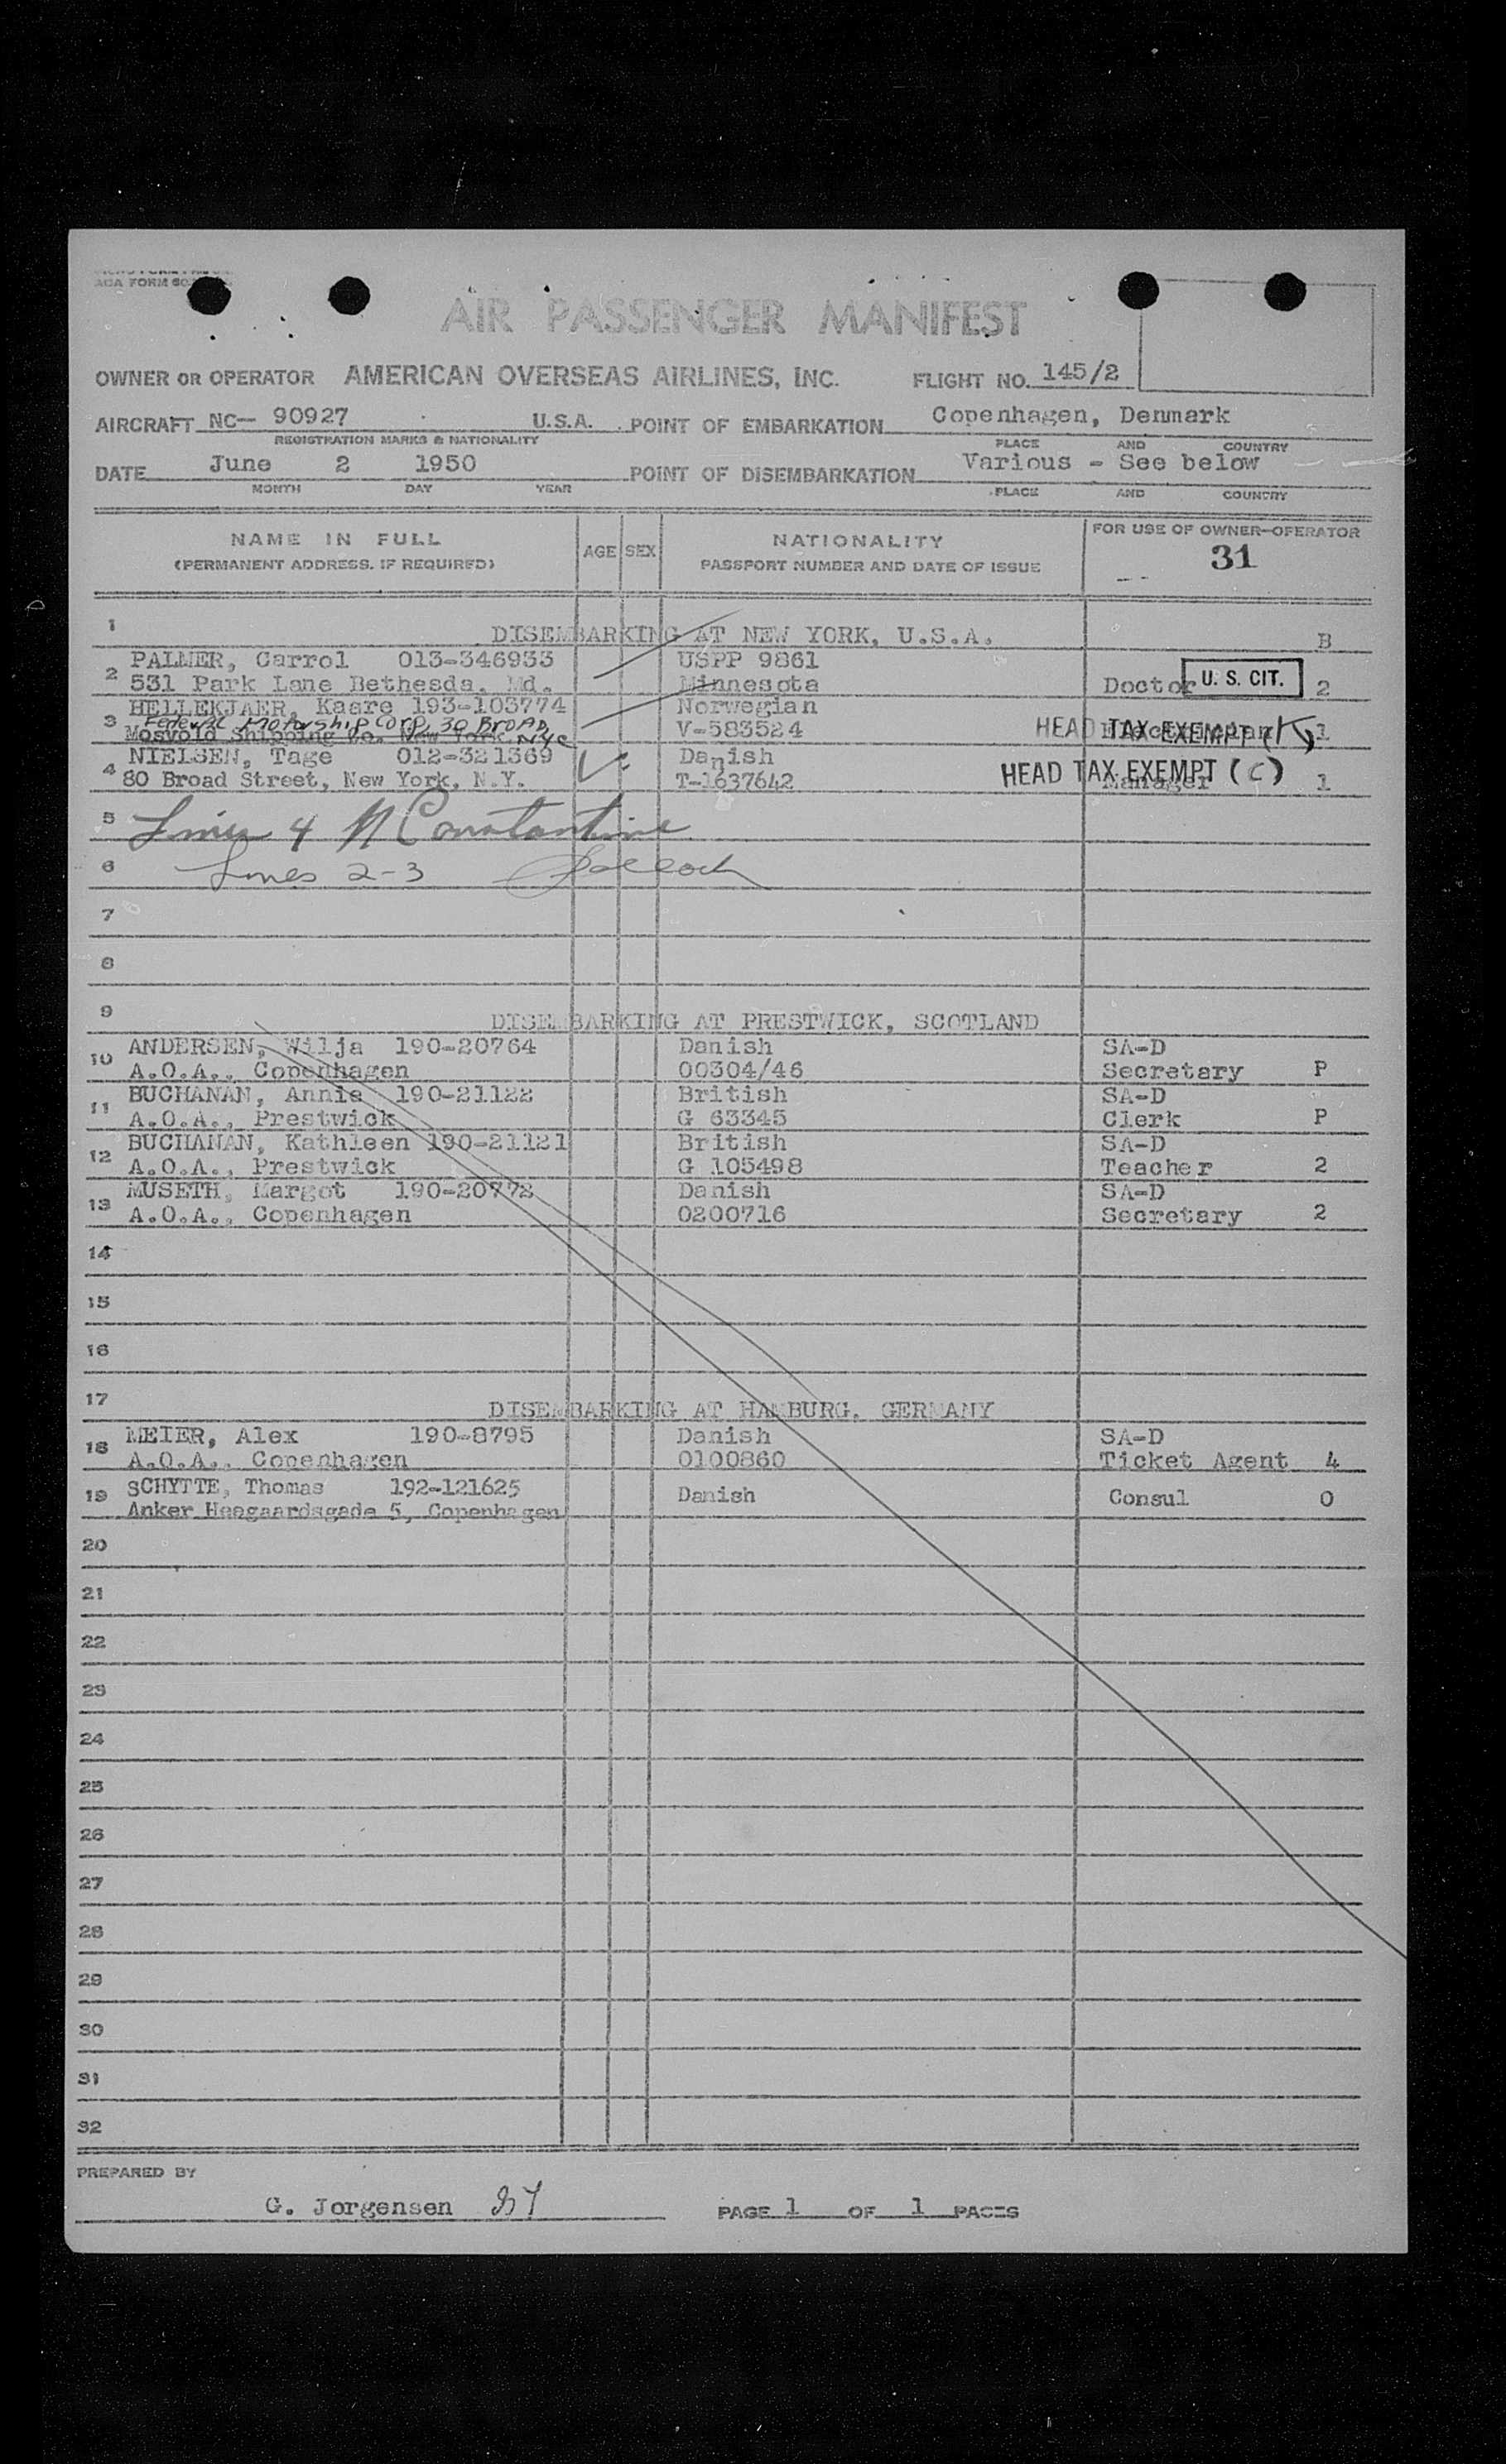 AOA FORM 60
AIR PASSENGER MANIFEST
OWNER OR OPERATOR AMERICAN OVERSEAS AIRLINES, INC. FLIGHT NO. 145/2
AIRCRAFT NC- 90927 U.S.A. POINT OF EMBARKATION Copenhagen, Denmark
REGISTRATION MARKS & NATIONALITY PLACE AND COUNTRY
DATE June 2 1950 POINT OF DISEMBARKATION Various - See below
MONTH DAY YEAR PLACE AND COUNTRY
NAME IN FULL AGE SEX NATIONALITY FOR USE OF OWNER-OPERATOR
(PERMANENT ADDRESS, IF REQUIRED) PASSPORT NUMBER AND DATE OF ISSUE 31
1 DISEMBARKING AT NEW YORK, U.S.A. B
2 PALMER, Carrol 013-346933 USPP 9861
531 Park Lane Bethesda, Md. Minnesota Doctor U. S. CIT. 2
3 HELLEKJAER, Kaare 193-103774 Norwegian
Federal Motorship Corp, 30 Broad, NYC
Mosvold Shipping Co. New York V-583524 HEAD TAX EXEMPT (K) 1
4 NIELSEN, Tage 012-321369 Danish
80 Broad Street, New York, N.Y. T-1637642 HEAD TAX EXEMPT (C) Manager 1
5 Lines 4 N Constantine
6 Lines 2-3
7
8
9 DISEMBARKING AT PRESTWICK, SCOTLAND
10 ANDERSEN, Wilja 190-20764 Danish SA-D
A.O.A., Copenhagen 00304/46 Secretary P
11 BUCHANAN, Annie 190-21122 British SA-D
A.O.A., Prestwick G 63345 Clerk P
12 BUCHANAN, Kathleen 190-21121 British SA-D
A.O.A., Prestwick G 105498 Teacher 2
13 MUSETH, Margot 190-20772 Danish SA-D
A.O.A., Copenhagen 0200716 Secretary 2
14
15
16
17 DISEMBARKING AT HAMBURG, GERMANY
18 MEIER, Alex 190-8795 Danish SA-D
A.O.A., Copenhagen 0100860 Ticket Agent 4
19 SCHYTTE, Thomas 192-121625 Danish Consul 0
Anker Heegaardsgade 5, Copenhagen
20
21
22
23
24
25
26
27
28
29
30
31
32
PREPARED BY
G. Jorgensen PAGE 1 OF 1 PAGES